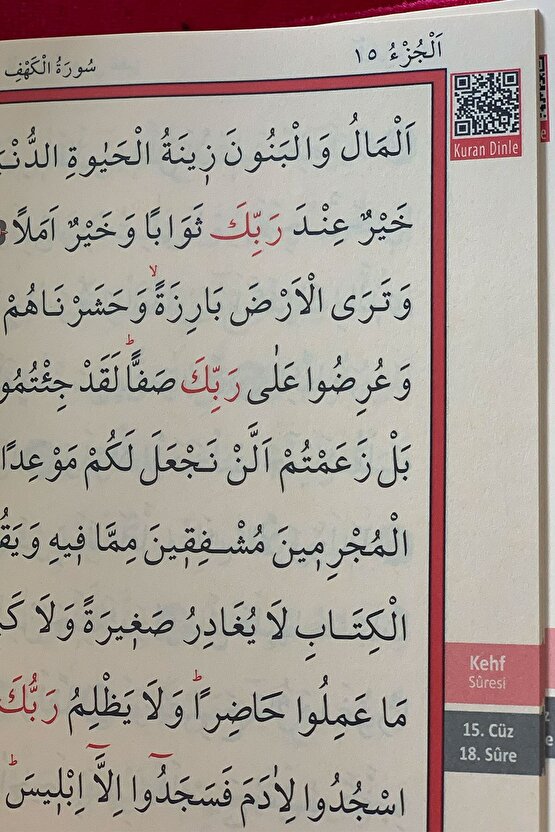 اَلْجُزْءُ ١٥
سُورَةُ الْكَهْفِ
Kuran Dinle
اَلْمَالُ وَالْبَنُونَ زِينَةُ الْحَيٰوةِ
خَيْرٌ عِنْدَ رَبِّكَ ثَوَابًا وَخَيْرٌ اَمَلًا
وَتَرَى الْاَرْضَ بَارِزَةًۙ وَحَشَرْنَاهُمْ
وَعُرِضُوا عَلٰى رَبِّكَ صَفًّاۜ لَقَدْ
بَلْ زَعَمْتُمْ اَلَّنْ نَجْعَلَ لَكُمْ مَوْعِدًا
الْمُجْرِمِينَ مُشْفِقِينَ مِمَّا فِيهِ
الْكِتَابِ لَا يُغَادِرُ صَغِيرَةً وَلَا
مَا عَمِلُوا حَاضِرًاۜ وَلَا يَظْلِمُ رَبُّكَ
اسْجُدُوا لِاٰدَمَ فَسَجَدُٓوا اِلَّٓا اِبْلِيسَۜ
Kehf
Sûresi
15. Cüz
18. Sûre